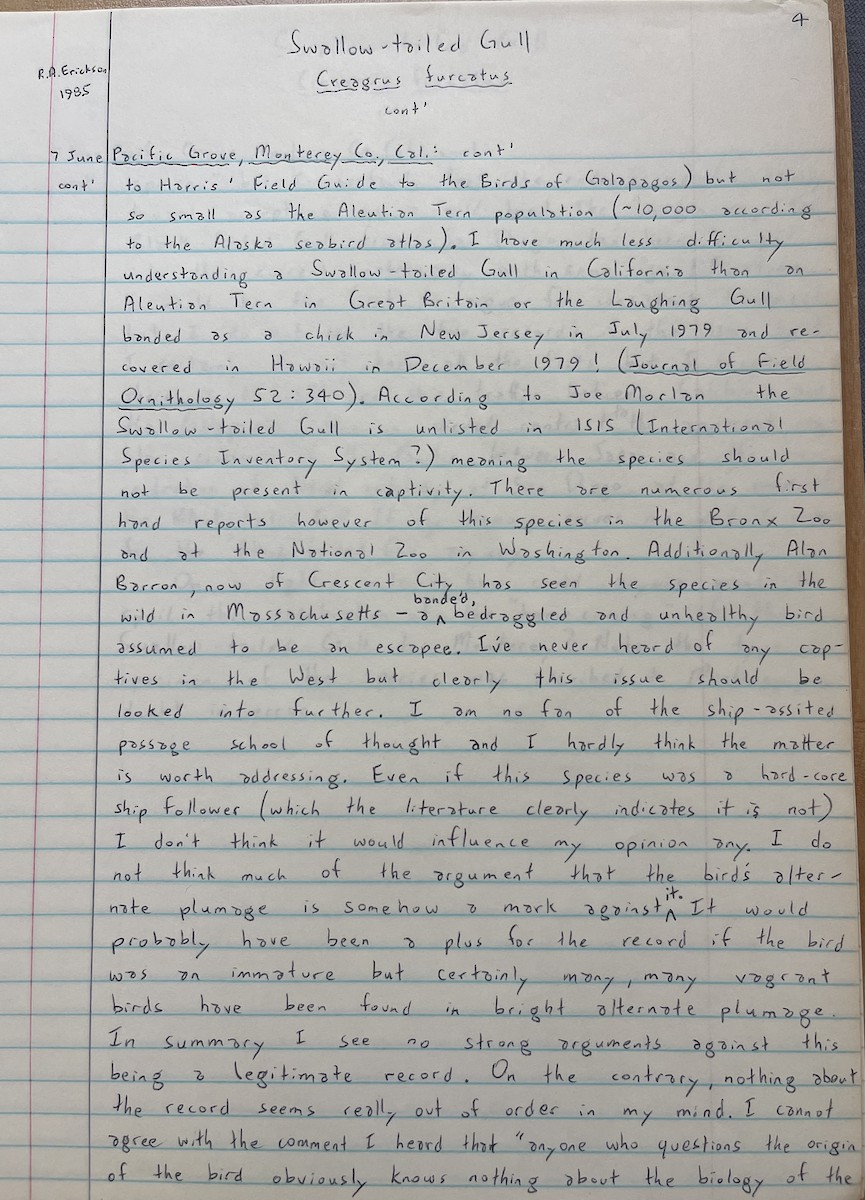 4
Swallow-tailed Gull
R.A. Erickson
1985
Creagrus furcatus
cont'
7 June
cont'
Pacific Grove, Monterey Co., Cal.: cont'
to Harris' Field Guide to the Birds of Galapagos) but not
so small as the Aleutian Tern population (~10,000 according
to the Alaska seabird atlas). I have much less difficulty
understanding a Swallow-tailed Gull in California than an
Aleutian Tern in Great Britain or the Laughing Gull
banded as a chick in New Jersey in July 1979 and re-
covered in Hawaii in December 1979! (Journal of Field
Ornithology 52:340). According to Joe Morlan the
Swallow-tailed Gull is unlisted in ISIS (International
Species Inventory System?) meaning the species should
not be present in captivity. There are numerous first
hand reports however of this species in the Bronx Zoo
and at the National Zoo in Washington. Additionally Alan
Barron, now of Crescent City has seen the species in the
wild in Massachusetts – a banded, bedraggled and unhealthy bird
assumed to be an escapee. I've never heard of any cap-
tives in the West but clearly this issue should be
looked into further. I am no fan of the ship-assited
passage school of thought and I hardly think the matter
is worth addressing. Even if this species was a hard-core
ship follower (which the literature clearly indicates it is not)
I don't think it would influence my opinion any. I do
not think much of the argument that the bird's alter-
nate plumage is somehow a mark against it. It would
probably have been a plus for the record if the bird
was an immature but certainly many, many vagrant
birds have been found in bright alternate plumage.
In summary I see no strong arguments against this
being a legitimate record. On the contrary, nothing about
the record seems really out of order in my mind. I cannot
agree with the comment I heard that "anyone who questions the origin
of the bird obviously knows nothing about the biology of the